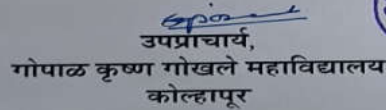 उपप्राचार्य,
गोपाळ कृष्ण गोखले महाविद्यालय
कोल्हापूर